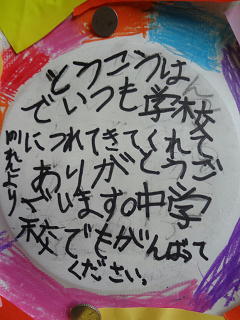 とうこうはん
でいつも学校
につれてきてくれて
ありがとうご
ざいます。中学
校でもがんばって
ください。
れんより